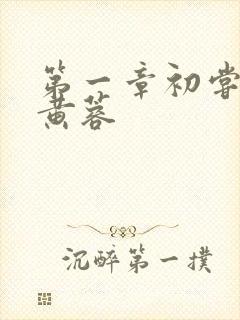 第一章初尝
黄蓉
沉醉第一撲